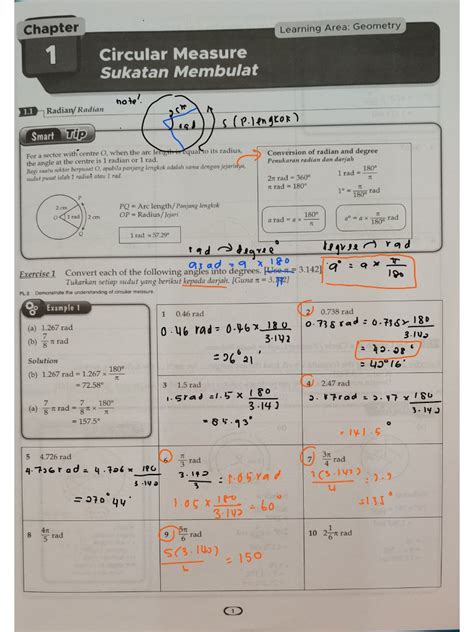 Chapter
1
Learning Area: Geometry
Circular Measure
Sukatan Membulat
note:
1.1 Radian/ Radian
rad
S (P. lengkok)
Smart Tip
For a sector with centre O, when the arc length is equal to its radius,
the angle at the centre is 1 radian or 1 rad.
Bagi suatu sektor berpusat O, apabila panjang lengkok adalah sama dengan jejarinya,
sudut pusat ialah 1 radian atau 1 rad.
P
2 cm
O 1 rad 2 cm
Q
PQ = Arc length/ Panjang lengkok
OP = Radius/ Jejari
1 rad = 57.29°
Conversion of radian and degree
Penukaran radian dan darjah
2π rad = 360°
π rad = 180°
1 rad = 180°/π
1° = π/180° rad
α rad = α × 180°/π
α° = α × π/180° rad
rad → degree
degree → rad
a rad = a × 180/π
a° = a × π/180
Exercise 1 Convert each of the following angles into degrees. [Use π = 3.142]
Tukarkan setiap sudut yang berikut kepada darjah. [Guna π = 3.142]
PL 2 Demonstrate the understanding of circular measure.
Example 1
(a) 1.267 rad
(b) 7/8 π rad
Solution
(b) 1.267 rad = 1.267 × 180°/π
= 72.58°
(a) 7/8 π rad = 7/8 π × 180°/π
= 157.5°
1 0.46 rad
0.46 rad = 0.46 × 180/3.142
= 26° 21'
2 0.738 rad
0.738 rad = 0.738 × 180/3.142
= 42.28°
= 42° 16'
3 1.5 rad
1.5 rad = 1.5 × 180/3.142
= 85.93°
4 2.47 rad
2.47 rad = 2.47 × 180/3.142
= 141.5°
5 4.726 rad
4.726 rad = 4.726 × 180/3.142
= 270° 44'
6 π/3 rad
3.142/3 = 1.05 rad
1.05 × 180/3.142 = 60°
7 3π/4 rad
3(3.142)/4
= 135°
8 4π/5 rad
9 5π/6 rad
5(3.142)/6 = 150
10 2 1/6 π rad
1